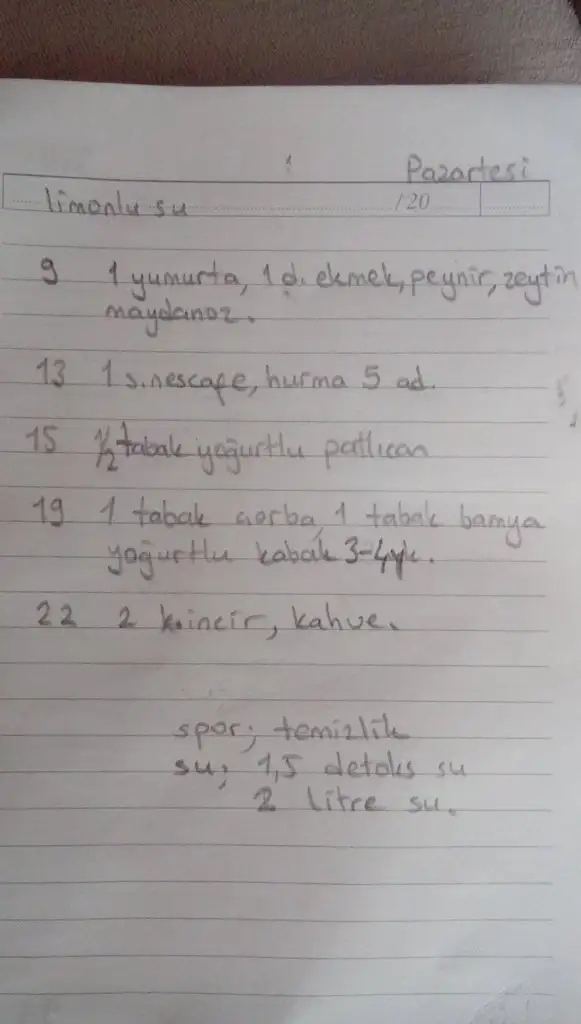 Pazartesi
limonlu su /20
9 1 yumurta, 1 d. ekmek, peynir, zeytin
maydanoz.
13 1 s. nescafe, hurma 5 ad.
15 1/2 tabak yoğurtlu patlıcan
19 1 tabak çorba, 1 tabak bamya
yoğurtlu kabak 3-4 yk.
22 2 k.incir, kahve.
spor; temizlik
su; 1,5 detoks su
2 litre su.